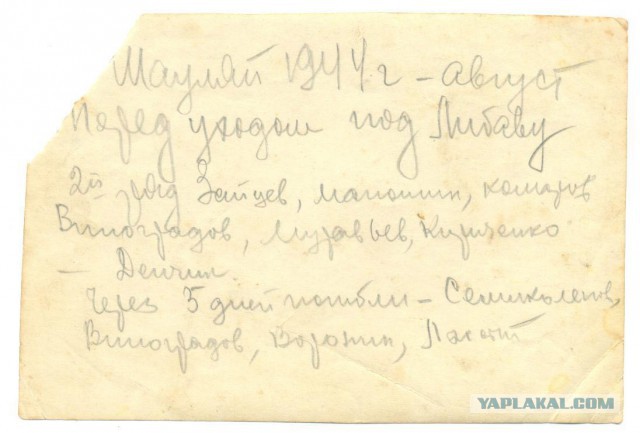 Шауляй 1944 г - август
перед уходом под Либаву
2й ряд Зайцев, Маношин, Комаров
Виноградов, Муравьев, Кириченко
- Денчик.
Через 5 дней погибли - Семиколенов,
Виноградов, Воронин,
YAPLAKAL.COM